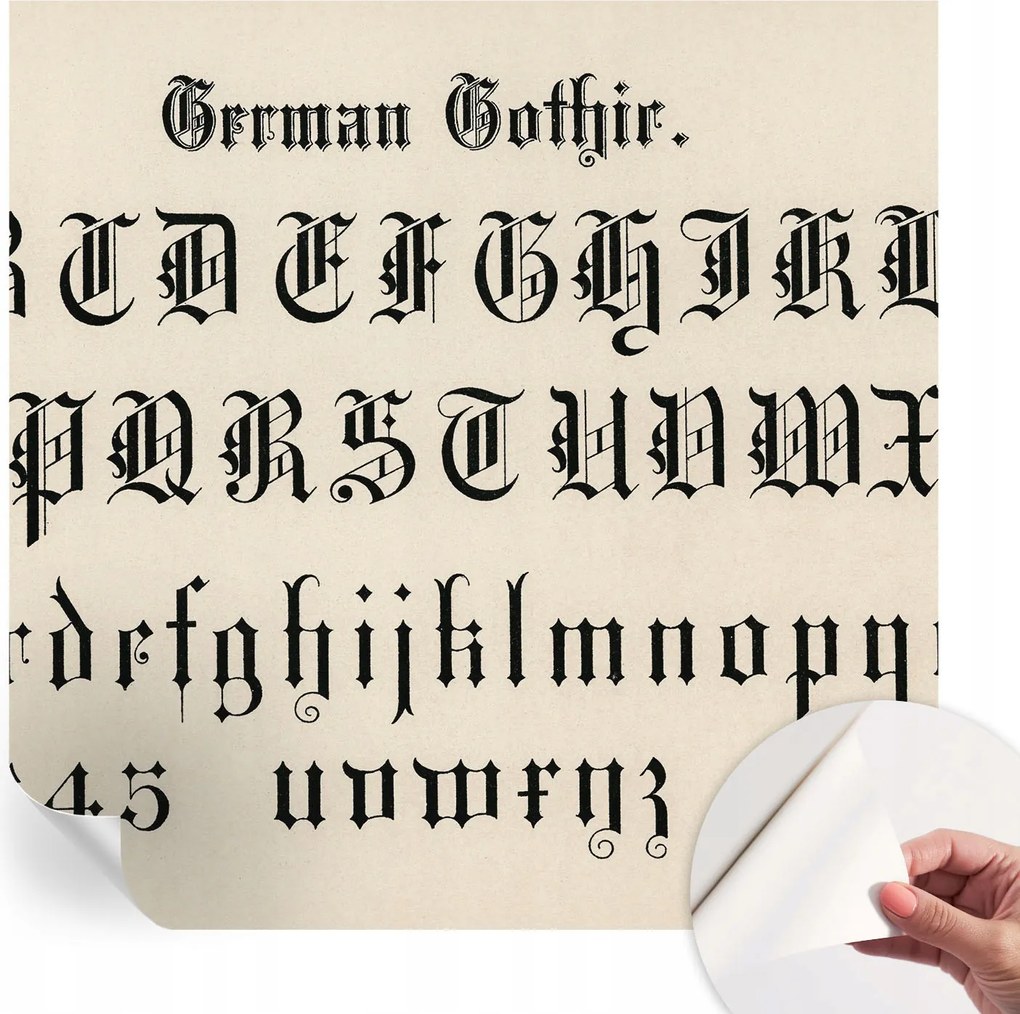 German Gothic.
B C D E F G H I K L
P Q R S T U V W X
c d e f g h i j k l m n o p q
4 5 u v w x y z